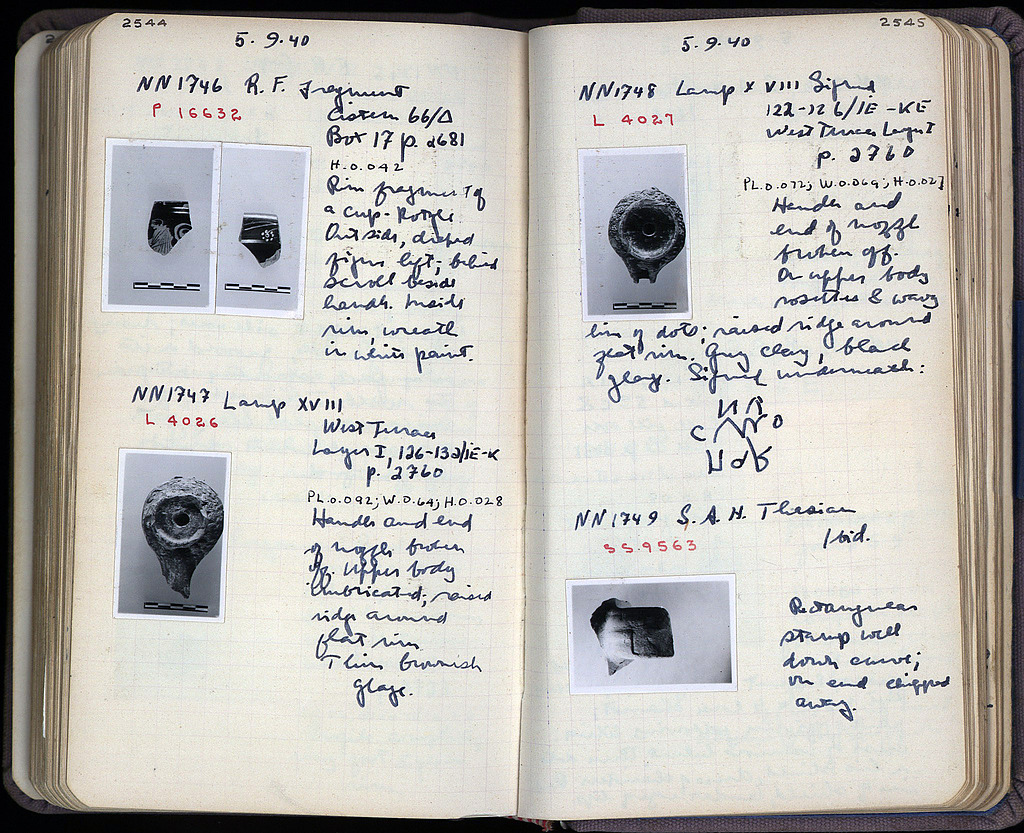 2544
5.9.40
NN1746 R.F. Fragment
P 16632
Cistern 66/Δ
Box 17 p. 2681
H.0.042
Rim fragment of
a cup-kotyle.
Outside, draped
figure left; behind
scroll beside
handle. Inside
rim, wreath
in white paint.
NN1747 Lamp XVIII
L 4026
West Terrace
Layer I, 126-132/ΙΕ-Κ
p. 2760
PL.0.092; W.0.64; H.0.028
Handle and end
of nozzle broken
off. Upper body
imbricated; raised
ridge around
flat rim.
Thin brownish
glaze.
2545
5.9.40
NN1748 Lamp XVIII Signed
L 4027
122-126/ΙΕ-ΚΕ
West Terrace Layer I
p. 2760
PL.0.072; W.0.069; H.0.027
Handle and
end of nozzle
broken off.
On upper body
rosettes & wavy
line of dots; raised ridge around
flat rim. Grey clay, black
glaze. Signed underneath:
NN1749 S.A.H. Thasian
SS.9563
Ibid.
Rectangular
stamp well
down curve;
one end chipped
away.